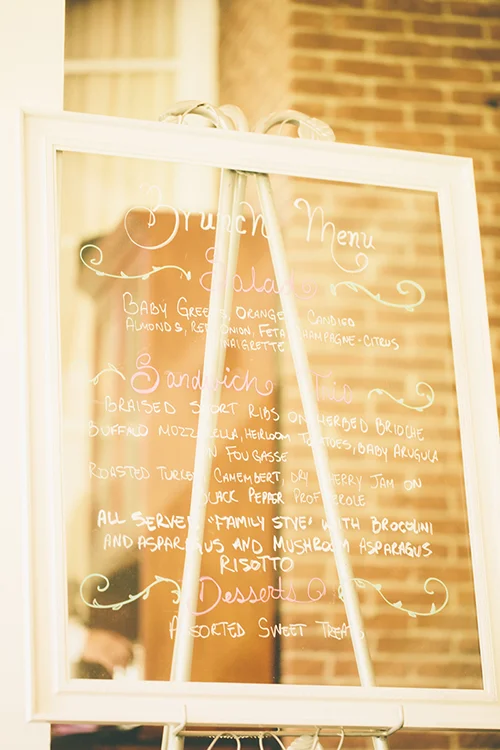 Brunch Menu
Salads
Baby Greens, Oranges, Candied
Almonds, Red Onion, Feta Champagne-Citrus
Vinaigrette
Sandwich Trio
Braised Short Ribs on Herbed Brioche
Buffalo Mozzarella, Heirloom Tomatoes, Baby Arugula
on Fougasse
Roasted Turkey Camembert, Dry Cherry Jam on
Black Pepper Profiterole
All Served "Family Stye" with Brocolini
and Asparagus and Mushroom Asparagus
Risotto
Desserts
Assorted Sweet Treats